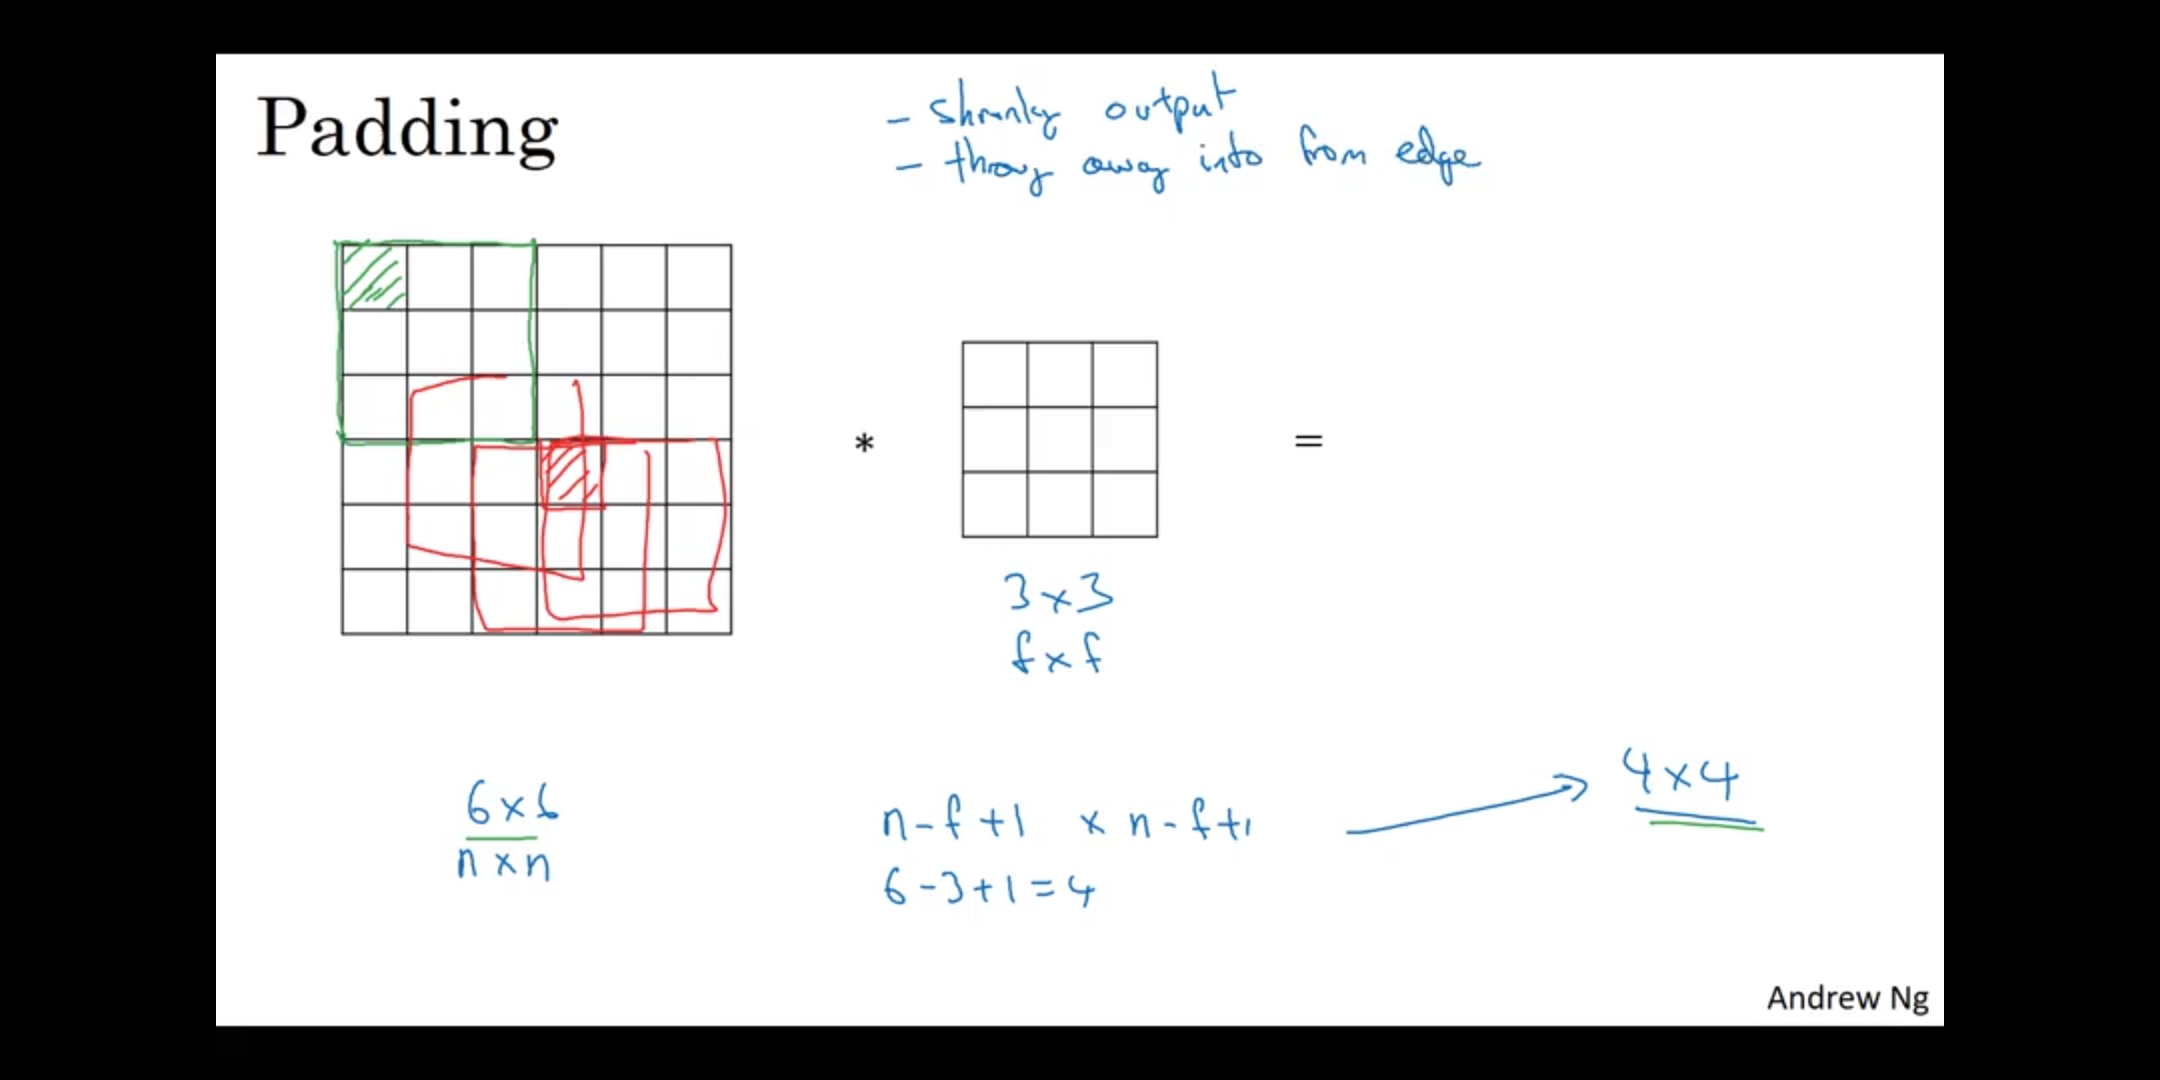 Padding
- shrinky output
- throwy away info from edge
*
=
3 x 3
f x f
6 x 6
n x n
n - f + 1 x n - f + 1
6 - 3 + 1 = 4
4 x 4
Andrew Ng